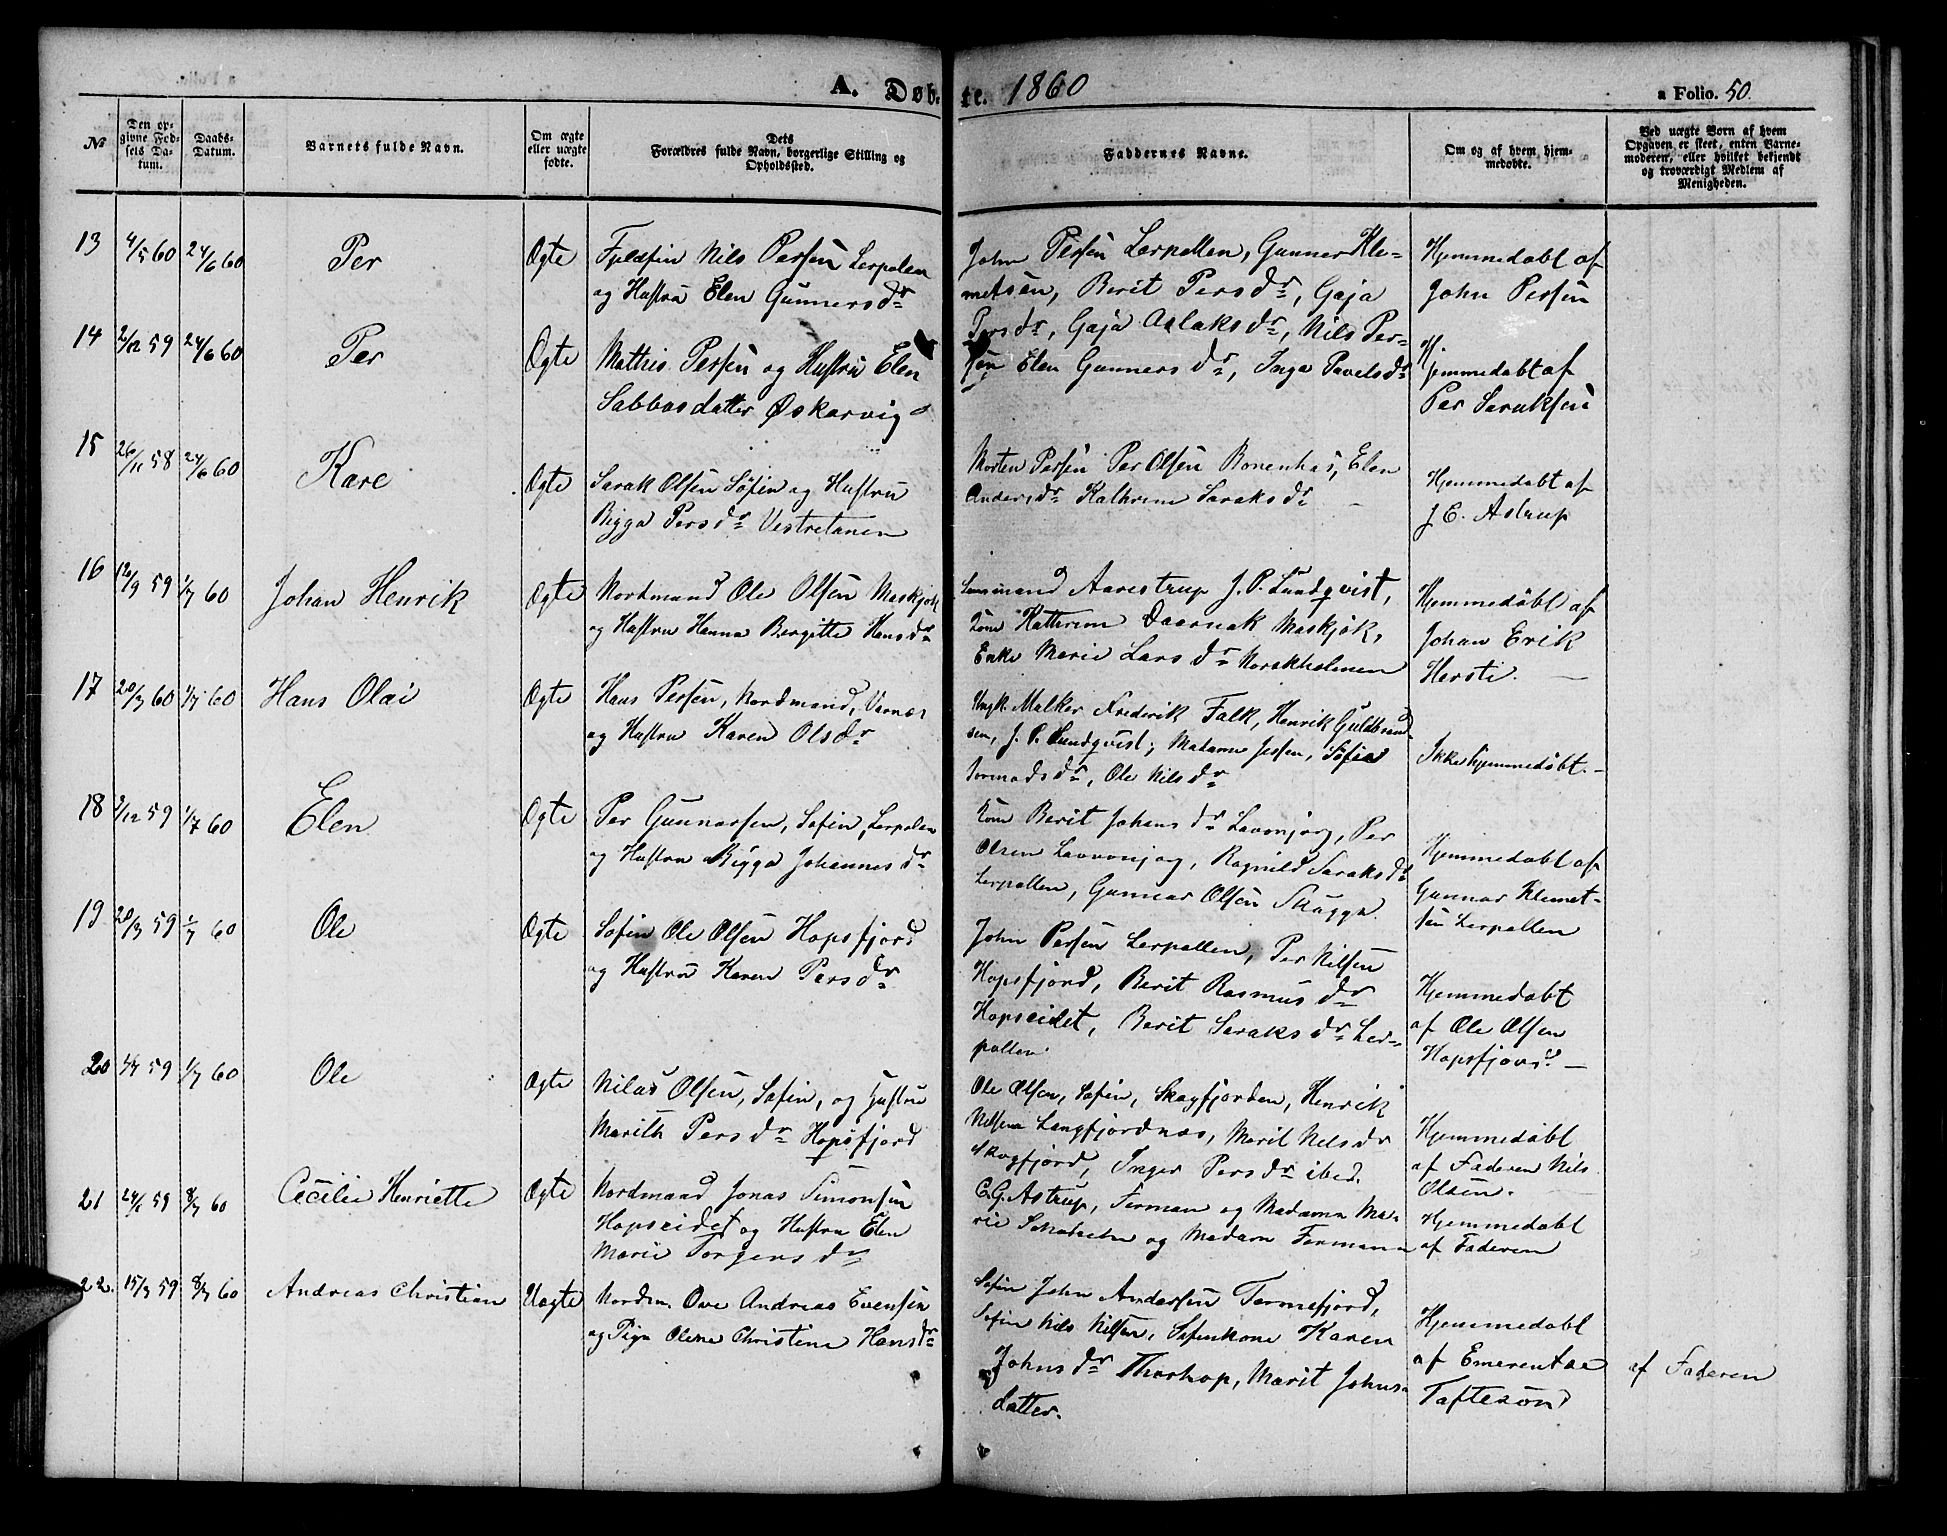 A. Døb-te. 1860
a Folio. 50.
№
Den op-
givne Fød-
sels Da-
tum.
Daabs-
Datum.
Barnets fulde Navn.
Om ægte
eller uægte
fødte.
Dets
Forældres fulde Navn, borgerlige Stilling og
Opholdssted.
Faddernes Navne.
Om og af hvem hjem-
medøbte.
Ved uægte Børn af hvem
Opgaven er skeet, enten Barne-
moderen, eller hvilket bekjendt
og troværdigt Medlem af
Menigheden.
13 4/5 60 24/6 60 Per Ægte Fjeldfin Nils Persen Lerpolen
og Hustru Elen Gunnersdr
John Persen Lerpollen, Gunner Kle-
metsen, Berit Persdr, Gaja
Persdr, Gaja Aslaksdr, Nils Per-
sen Elen Gunnersdr, Inga Pavelsdr
Hjemmedøbt af
John Persen
14 2/12 59 24/6 60 Per Ægte Mathis Persen og Hustru Elen
Sabbasdatter Øskarvig
Hjemmedøbt af
Per Saraksen
15 26/11 58 24/6 60 Kare Ægte Sarak Olsen Søfin og Hustru
Bigga Persdr Vestretanen
Morten Persen Per Olsen Bonenhas, Elen
Andersdr Kathrine Saraksdr
Hjemmedøbt af
J. E. Astrup
16 12/9 59 1/7 60 Johan Henrik Ægte Nordmand Ole Olsen Maskjok
og Hustru Hanna Bergitte Hansdr
Lensmand Aarestrup J. P. Lundqvist,
Kone Kathrine Daornak Maskjok,
Enke Marie Larsdr Norskholmen
Hjemmedøbt af
Johan Erik
Hersti.
17 20/3 60 1/7 60 Hans Olai Ægte Hans Persen, Nordmand, Varnæs
og Hustru Karen Olsdr
Ungk. Malker Frederik Falk, Henrik Guldbrand-
sen, J. P. Lundqvist, Madame Jessen, Sofie
Tormodsdr, Ole Nilsdr
Ikke hjemmedøbt.
18 2/12 59 1/7 60 Elen Ægte Per Gunnarsen, Søfin, Lerpolen
og Hustru Bigga Johannesdr
Kone Berit Johansdr Lavonjarg, Per
Olsen Lavvonjog, Ragnild Saraksdr
Lerpollen, Gunnar Olsen Skugga.
Hjemmedøbt af
Gunnar Klemet-
sen Lerpollen
19 20/3 59 1/7 60 Ole Ægte Søfin Ole Olsen Hopsfjord
og Hustru Karen Persdr
John Persen Lerpollen, Per Nilsen
Hopsfjord, Berit Rasmusdr
Hopseidet, Berit Saraksdr Ler-
pollen.
Hjemmedøbt
af Ole Olsen
Hopsfjord.
20 4/7 59 1/7 60 Ole Ægte Nilas Olsen, Søfin, og Hustru
Marith Persdr Hopsfjord
Ole Olsen, Søfin, Skogfjorden, Henrik
Nilsen Langfjordnæs, Marit Nelsdr
Skogfjord, Inger Persdr ibed.
Hjemmedøbt
af Faderen Nils
Olsen.
21 24/6 59 8/7 60 Cecilie Henriette Ægte Nordmand Jonas Simonsen
Hopseidet og Hustru Elen
Marie Torgersdr
C. G. Astrup, Ferman og Madame Ma-
rie og Madam Fermann
Hjemmedøbt
af Faderen
22. 15/3 59 8/7 60 Andreas Christian Uægte Nordm. Ove Andreas Evensen
og Pige Olene Christine Hansdr
Søfin John Andersen Tormefjord,
Søfin Nils Nilsen, Søfinkone Karen
Johnsdr Thorhop, Marit Johns-
datter.
Hjemmedøbt
af Emerentse
Taftesøn
af Faderen